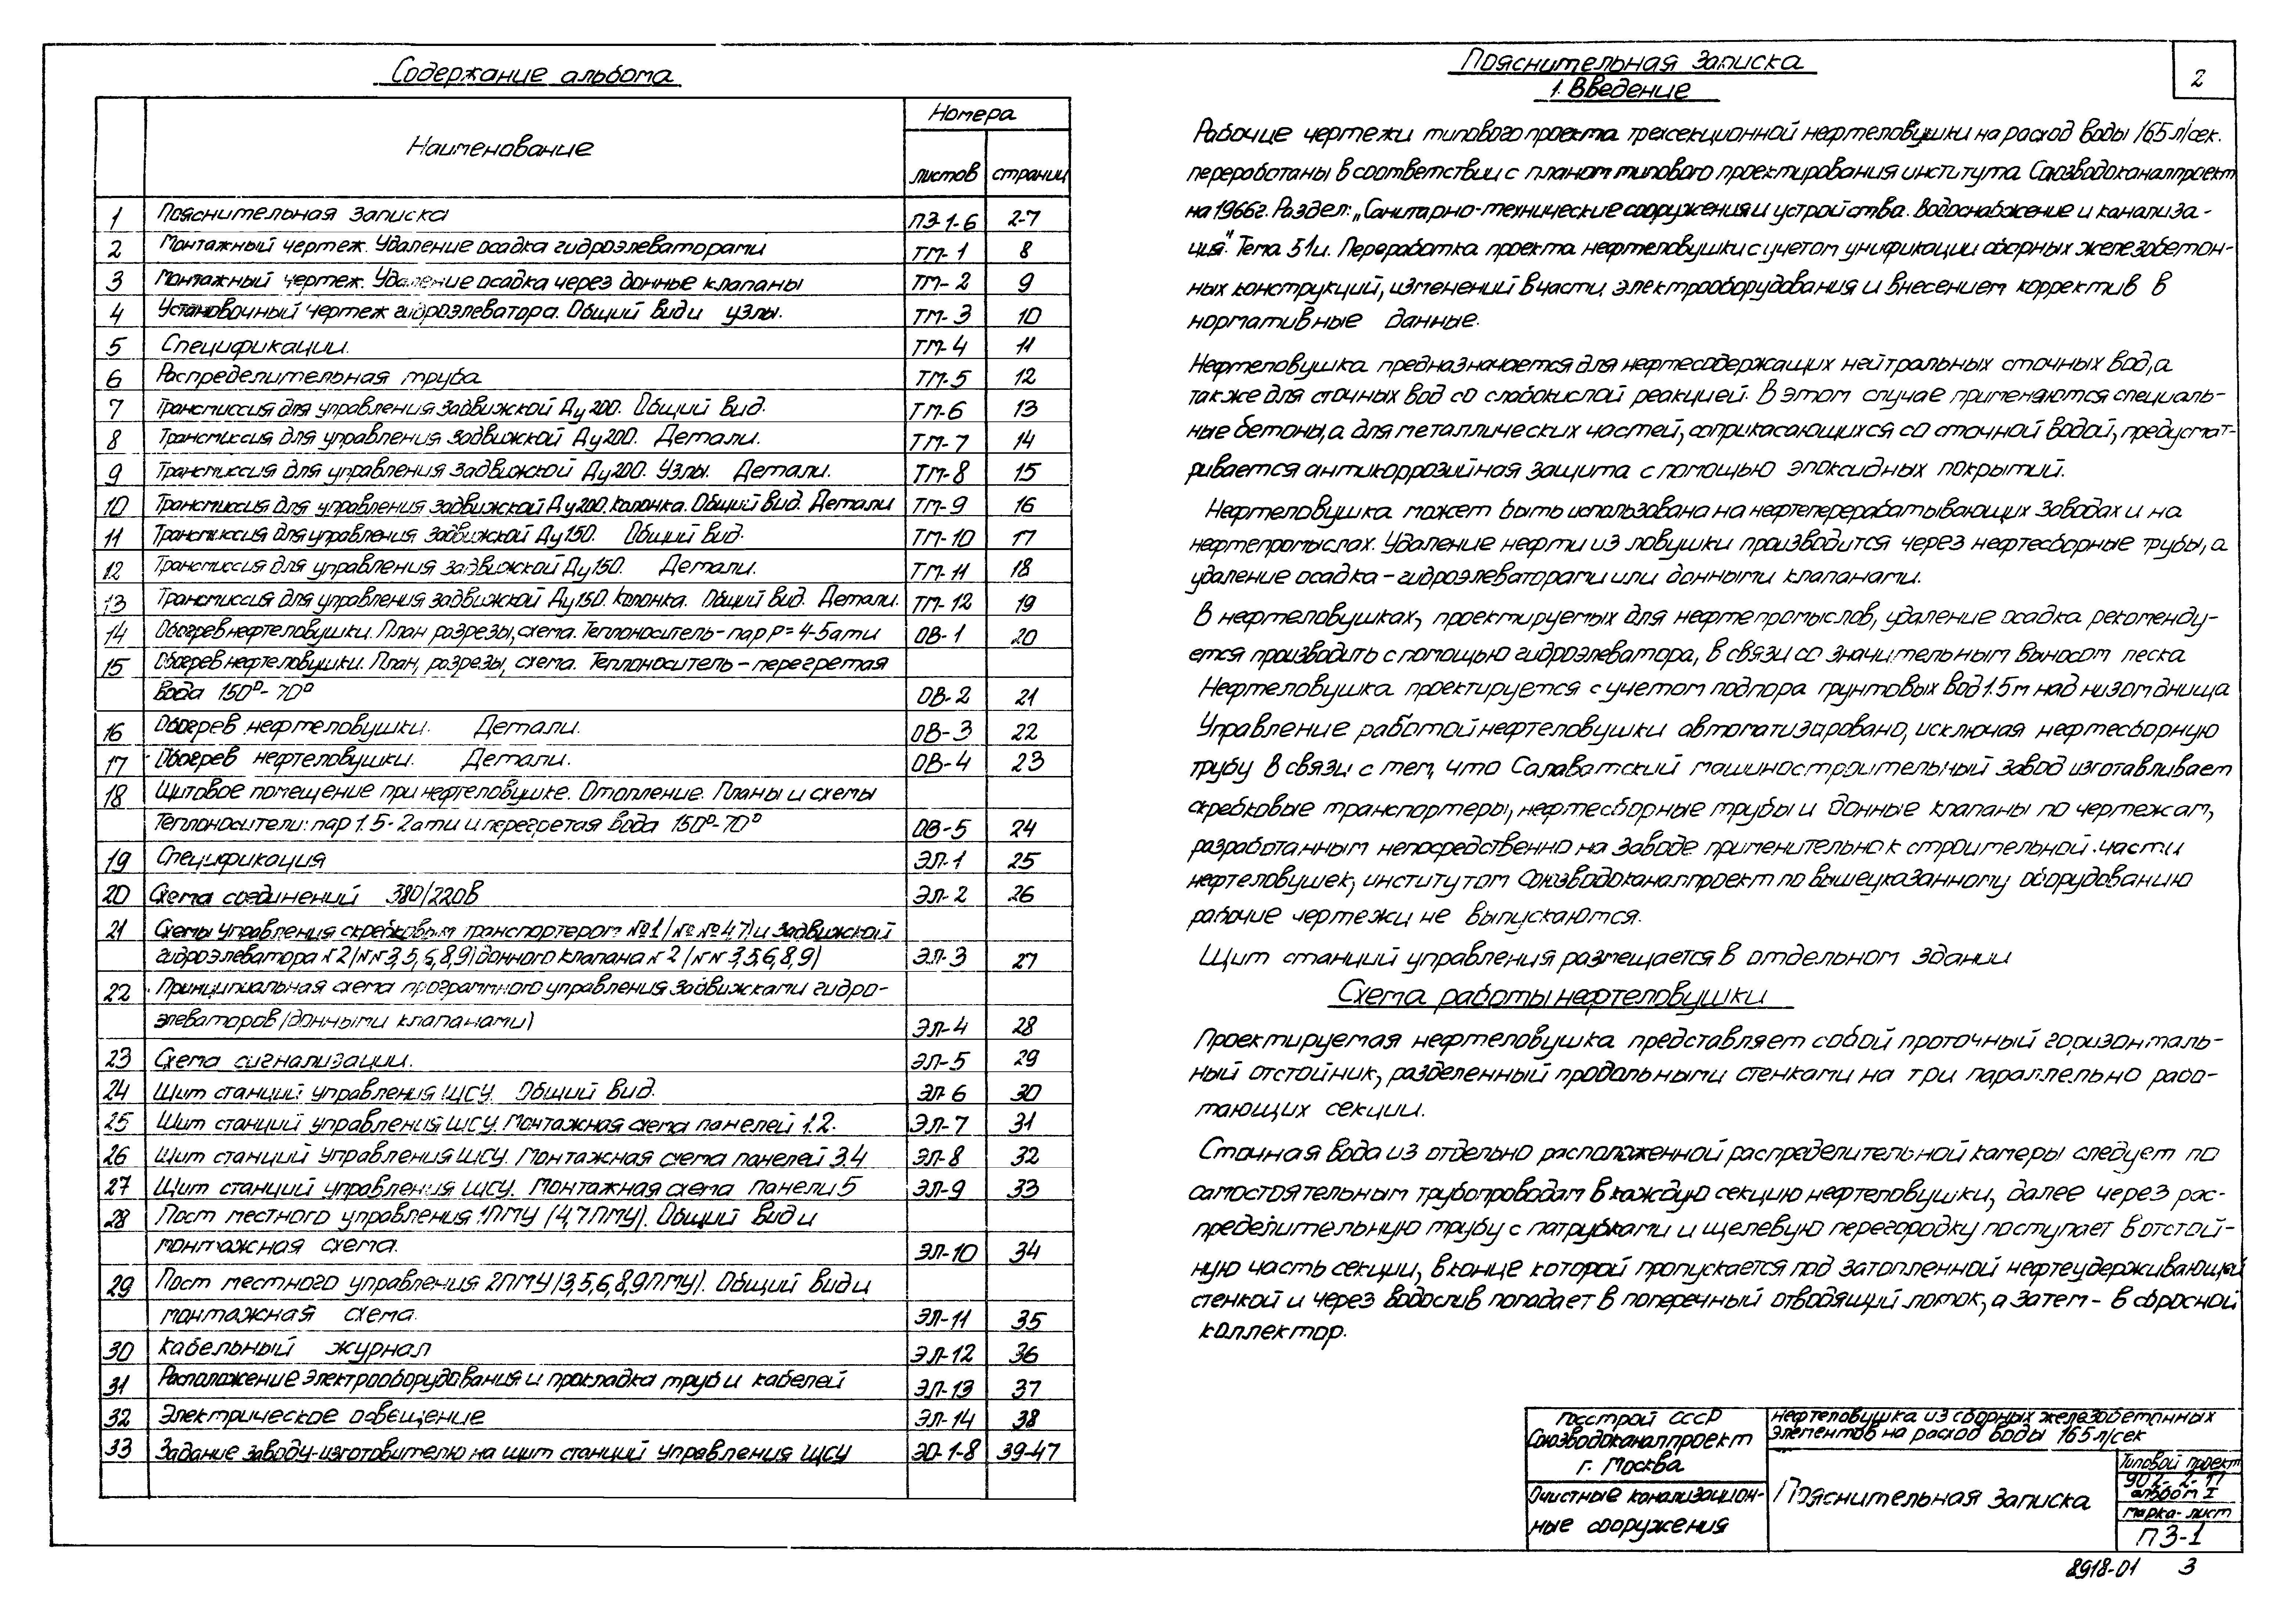 Содержание альбома
Наименование
Номера
листов страниц
1 Пояснительная записка ПЗ-1-6 2-7
2 Монтажный чертеж. Удаление осадка гидроэлеваторами ТМ-1 8
3 Монтажный чертеж. Удаление осадка через донные клапаны ТМ-2 9
4 Установочный чертеж гидроэлеватора. Общий вид и узлы. ТМ-3 10
5 Спецификации. ТМ-4 11
6 Распределительная труба ТМ-5 12
7 Трансмиссия для управления задвижкой Ду200. Общий вид. ТМ-6 13
8 Трансмиссия для управления задвижкой Ду200. Детали. ТМ-7 14
9 Трансмиссия для управления задвижкой Ду200. Узлы. Детали. ТМ-8 15
10 Трансмиссия для управления задвижкой Ду200. Колонка. Общий вид. Детали ТМ-9 16
11 Трансмиссия для управления задвижкой Ду150. Общий вид. ТМ-10 17
12 Трансмиссия для управления задвижкой Ду150. Детали. ТМ-11 18
13 Трансмиссия для управления задвижкой Ду150. Колонка. Общий вид. Детали. ТМ-12 19
14 Обогрев нефтеловушки. План, разрезы, схема. Теплоноситель-пар Р=4-5ати ОВ-1 20
15 Обогрев нефтеловушки. План, разрезы, схема. Теплоноситель-перегретая
вода 150°-70° ОВ-2 21
16 Обогрев нефтеловушки. Детали. ОВ-3 22
17 Обогрев нефтеловушки. Детали. ОВ-4 23
18 Щитовое помещение при нефтеловушке. Отопление. Планы и схемы
Теплоносители: пар 1.5-2ати и перегретая вода 150°-70° ОВ-5 24
19 Спецификация ЭЛ-1 25
20 Схема соединений 380/220в ЭЛ-2 26
21 Схемы управления скребковым транспортером №1/№№4,7/и задвижкой
гидроэлеватора №2/№№3,5,6,8,9/донного клапана №2/№№3,5,6,8,9/ ЭЛ-3 27
22 Принципиальная схема программного управления задвижками гидро-
элеваторов/донными клапанами/ ЭЛ-4 28
23 Схема сигнализации. ЭЛ-5 29
24 Щит станций управления ЩСУ. Общий вид. ЭЛ-6 30
25 Щит станций управления ЩСУ. Монтажная схема панелей 1.2. ЭЛ-7 31
26 Щит станций управления ЩСУ. Монтажная схема панелей 3.4 ЭЛ-8 32
27 Щит станций управления ЩСУ. Монтажная схема панели 5 ЭЛ-9 33
28 Пост местного управления 1ПМУ/4,7ПМУ/. Общий вид и
монтажная схема. ЭЛ-10 34
29 Пост местного управления 2ПМУ/3,5,6,8,9ПМУ/. Общий вид и
монтажная схема. ЭЛ-11 35
30 Кабельный журнал ЭЛ-12 36
31 Расположение электрооборудования и прокладка труб и кабелей ЭЛ-13 37
32 Электрическое освещение ЭЛ-14 38
33 Задание заводу-изготовителю на щит станций управления ЩСУ ЭО-1-8 39-47
Пояснительная записка
1. Введение
2
Рабочие чертежи типового проекта трехсекционной нефтеловушки на расход воды 165л/сек.
переработаны в соответствии с планом типового проектирования института Союзводоканалпроект
на 1966г. Раздел: „Санитарно-технические сооружения и устройства. Водоснабжение и канализа-
ция". Тема 51и. Переработка проекта нефтеловушки с учетом унификации сборных железобетон-
ных конструкций, изменений в части электрооборудования и внесением корректив в
нормативные данные.
Нефтеловушка предназначается для нефтесодержащих нейтральных сточных вод, а
также для сточных вод со слабокислой реакцией. В этом случае применяются специаль-
ные бетоны, а для металлических частей, соприкасающихся со сточной водой, предусмат-
ривается антикоррозийная защита с помощью эпоксидных покрытий.
Нефтеловушка может быть использована на нефтеперерабатывающих заводах и на
нефтепромыслах. Удаление нефти из ловушки производится через нефтесборные трубы, а
удаление осадка-гидроэлеваторами или донными клапанами.
В нефтеловушках, проектируемых для нефтепромыслов, удаление осадка рекоменду-
ется производить с помощью гидроэлеватора, в связи со значительным выносом песка
Нефтеловушка проектируется с учетом подпора грунтовых вод 1.5м над низом днища
Управление работой нефтеловушки автоматизировано, исключая нефтесборную
трубу в связи с тем, что Салаватский машиностроительный завод изготавливает
скребковые транспортеры, нефтесборные трубы и донные клапаны по чертежам,
разработанным непосредственно на заводе применительно к строительной части
нефтеловушек, институтом Союзводоканалпроект по вышеуказанному оборудованию
рабочие чертежи не выпускаются.
Щит станций управления размещается в отдельном здании
Схема работы нефтеловушки
Проектируемая нефтеловушка представляет собой проточный горизонталь-
ный отстойник, разделенный продольными стенками на три параллельно рабо-
тающих секции.
Сточная вода из отдельно расположенной распределительной камеры следует по
самостоятельным трубопроводам в каждую секцию нефтеловушки, далее через рас-
пределительную трубу с патрубками и щелевую перегородку поступает в отстой-
ную часть секции, в конце которой пропускается под затопленной нефтеудерживающей
стенкой и через водослив попадает в поперечный отводящий лоток, а затем-в сбросной
коллектор.
Госстрой СССР
Союзводоканалпроект
г. Москва
Очистные канализацион-
ные сооружения
Нефтеловушка из сборных железобетонных
элементов на расход воды 165л/сек
Пояснительная записка
Типовой проект
902-2-17
альбом I
марка-лист
ПЗ-1
8918-01 3